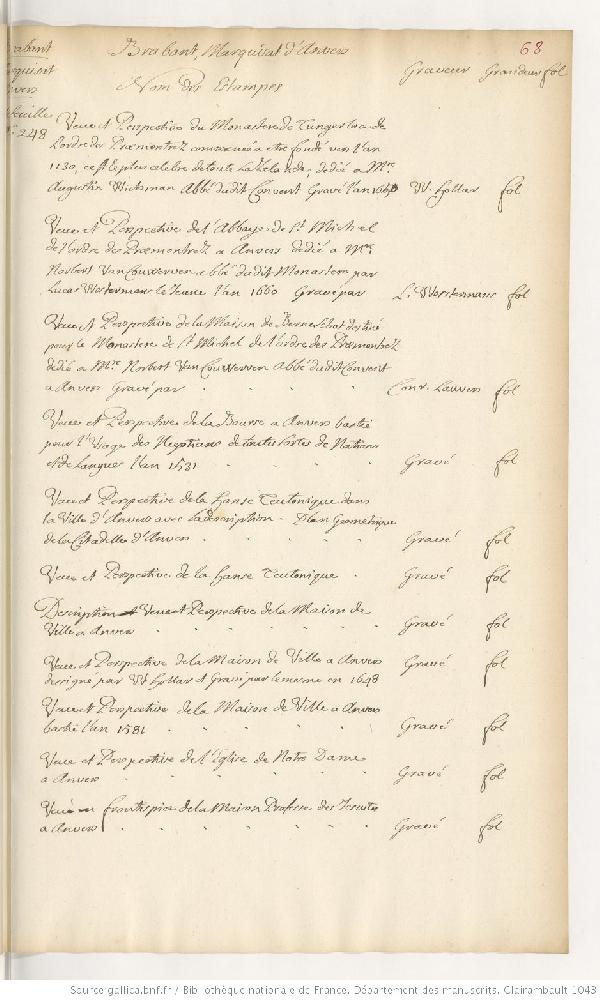 Brabant, Marquisat d'Anvers
68
Nom des Estampes
Graveur Grandeur fol
248
Veue et Perspective du Monastere de Tungerloo de
l'ordre des Præmontrez commencé a etre fondé vers l'an
1130, dedié a Mre.
Augustin Wichman Abbé dudit Convent Gravé l'an W. hollar fol
Veue et Perspective de l'Abbaye de St. Michel
de l'ordre des Præmontrez a Anvers dedié a Mre.
Norbert Van Couwerven Abbé dudit Monastere par
Lucas Vorsterman le Jeune l'an 1660 Gravé par L. Vorstermans fol
Veue et Perspective de la Maison de
pour le Monastere de St. Michel de l'ordre des Præmontrez
dedié a Mre. Norbert Van Couwerven Abbé dudit Convent
a Anvers Gravé par Conr. Lauwers fol
Veue et Perspective de la Bourse a Anvers bastie
pour l'Usage des Negotians de toutes sortes de Nations
et de Langues l'an 1531 Gravé fol
Veue et Perspective de la hanse Teutonique dans
la Ville d'Anvers avec la description. Plan Geometrique
de la Citadelle d'Anvers Gravé fol
Veue et Perspective de la hanse Teutonique Gravé fol
Description et Veue et Perspective de la Maison de
Ville a Anvers Gravé fol
Veue et Perspective de la Maison de Ville a Anvers Gravé fol
dessigné par W hollar et Gravé par le mesme en 1648
Veue et Perspective de la Maison de Ville a Anvers
bastie l'an 1581 Gravé fol
Veue et Perspective de l'Eglise de Notre Dame
a Anvers Gravé fol
Veue frontispice de la Maison Professe des Jesuites
a Anvers Gravé fol
Source gallica.bnf.fr / Bibliothèque nationale de France. Département des manuscrits. Clairambault 1043